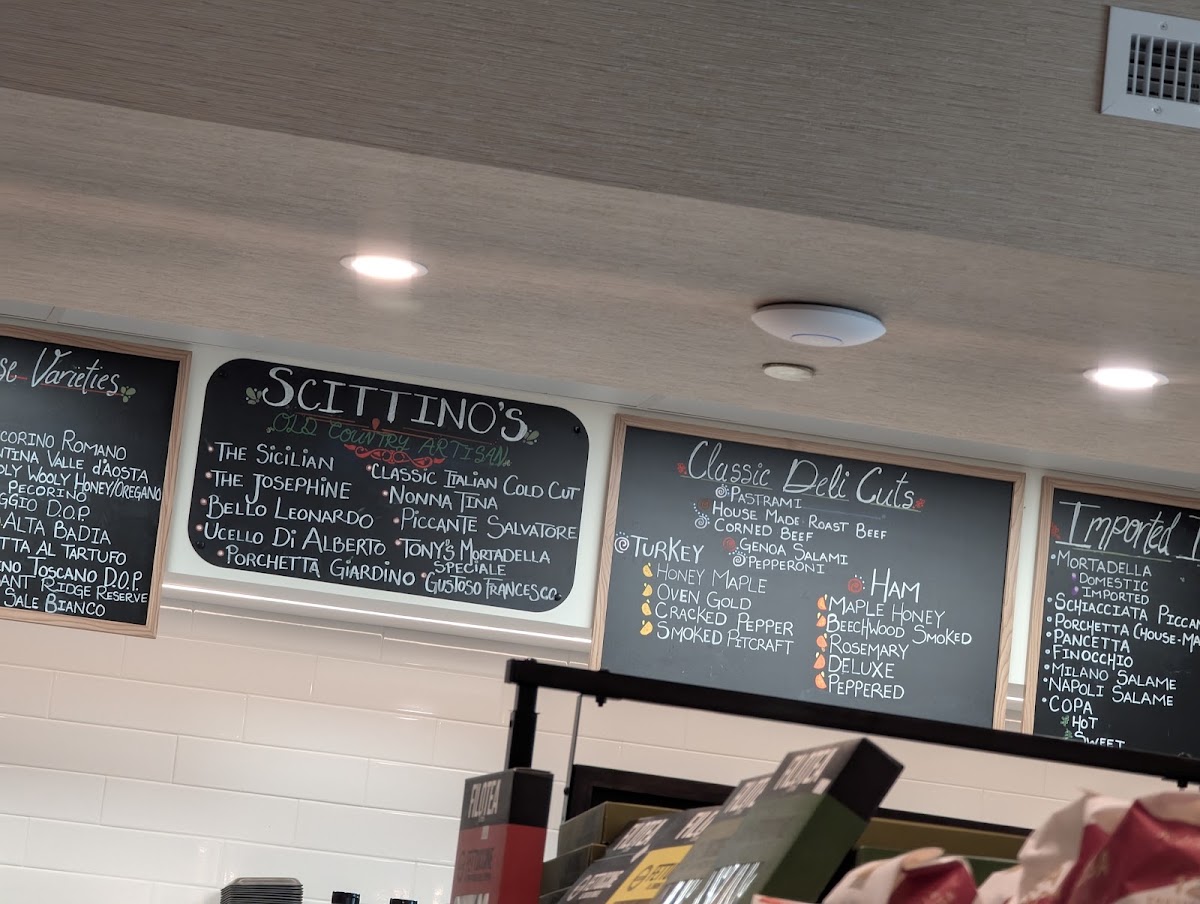 Varieties
Romano
Valle d'Aosta
Wooly Honey/Oregano
Pecorino
D.O.P.
Alta Badia
al Tartufo
Toscano D.O.P.
Ridge Reserve
Sale Bianco
Scittino's
Old Country Artisan
The Sicilian
The Josephine
Bello Leonardo
Ucello Di Alberto
Porchetta Giardino
Classic Italian Cold Cut
Nonna Tina
Piccante Salvatore
Tony's Mortadella
Speciale
Gustoso Francesco
Classic Deli Cuts
Pastrami
House Made Roast Beef
Corned Beef
Genoa Salami
Pepperoni
Turkey
Honey Maple
Oven Gold
Cracked Pepper
Smoked Pitcraft
Ham
Maple Honey
Beechwood Smoked
Rosemary
Deluxe
Peppered
Imported
Mortadella
Domestic
Imported
Schiacciata
Porchetta
Pancetta
Finocchio
Milano Salame
Napoli Salame
Copa
Hot
Sweet
Filotea
Filotea